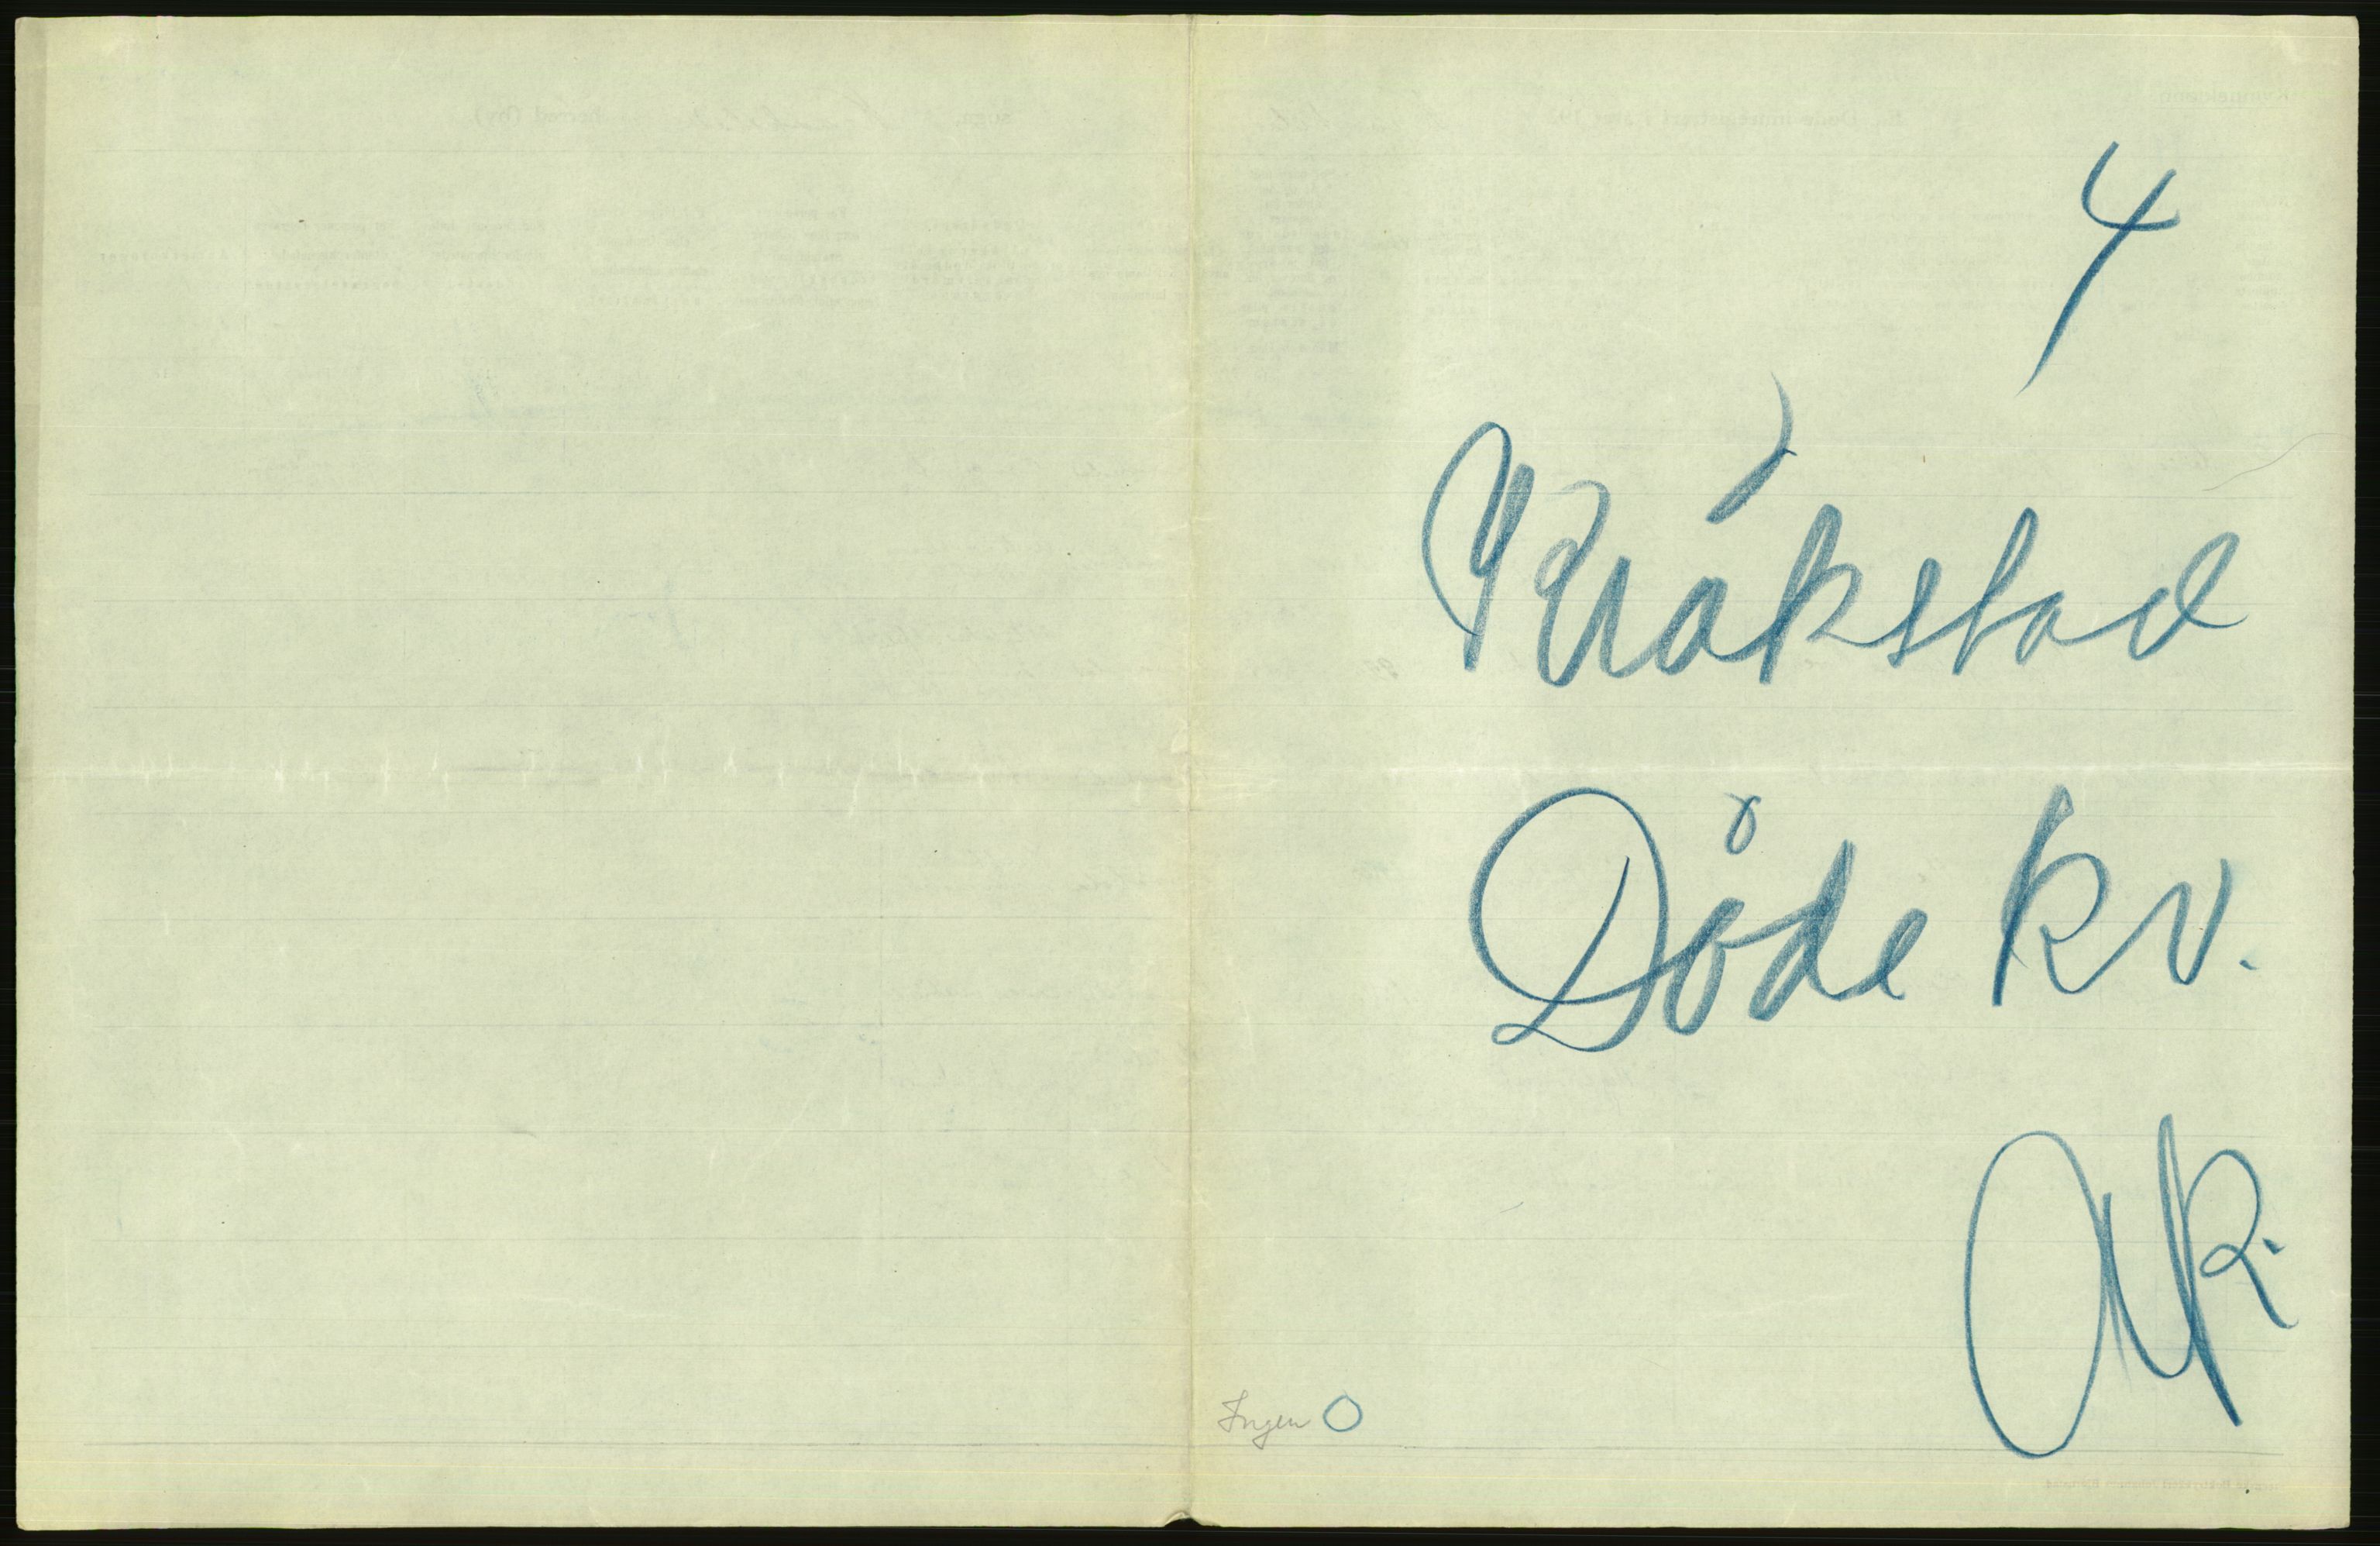 4
Kråkstad
Døde kv.
AK.
Ingen O